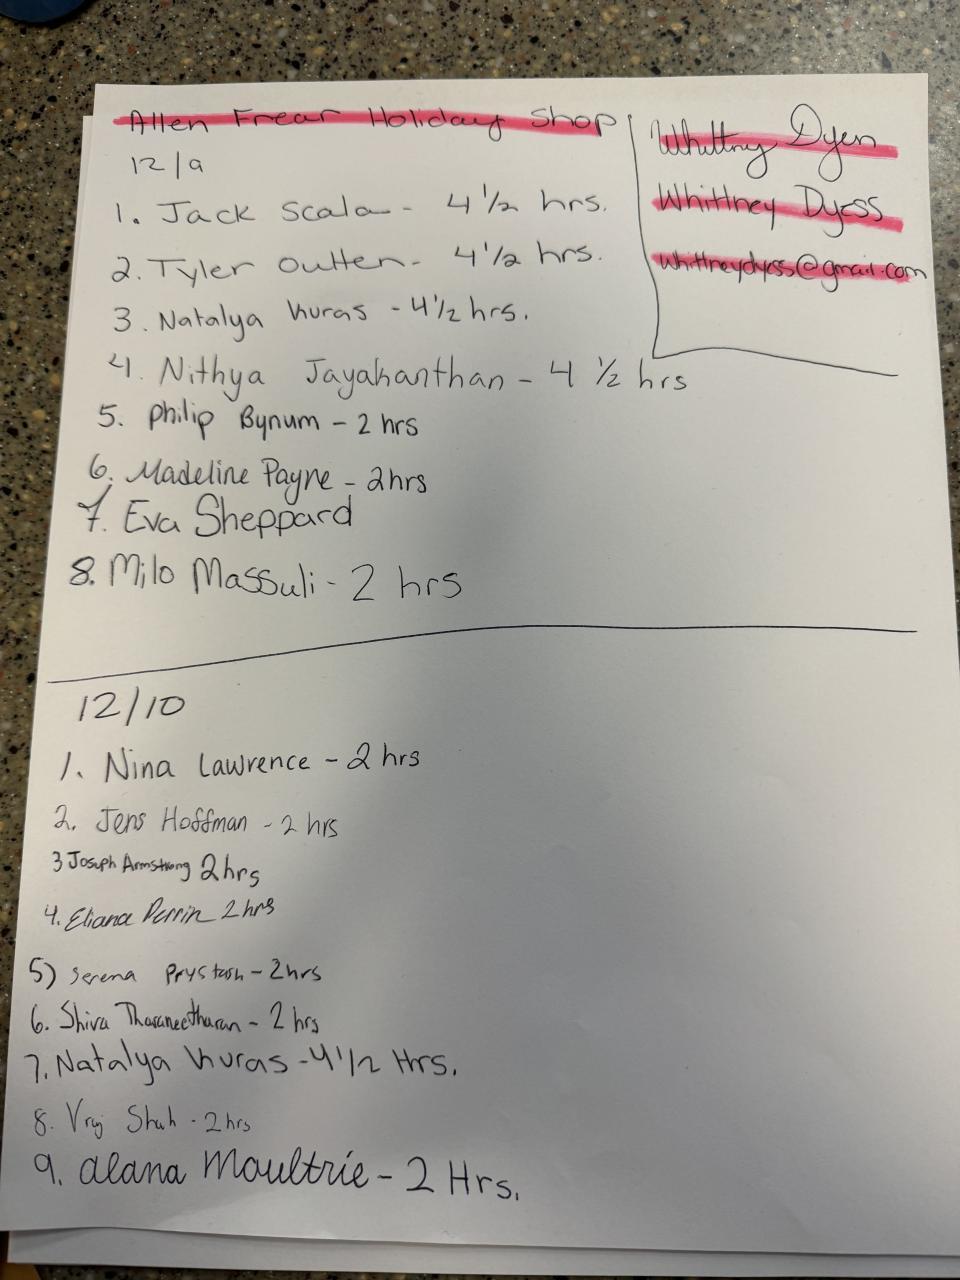 Allen Frear Holiday Shop
12/9
1. Jack Scala - 4 1/2 hrs.
2. Tyler Outten - 4 1/2 hrs.
3. Natalya Kuras - 4 1/2 hrs.
4. Nithya Jayakanthan - 4 1/2 hrs
5. Philip Bynum - 2 hrs
6. Madeline Payne - 2hrs
7. Eva Sheppard
8. Milo Massuli - 2 hrs
Whittney Dyess
Whittney Dyess
whittneydyess@gmail.com
12/10
1. Nina Lawrence - 2 hrs
2. Jens Hoffman - 2 hrs
3 Joseph Armstrong 2hrs
4. Eliana Perrin 2hrs
5) Serena Prystash - 2hrs
6. Shiva Tharaneetharan - 2 hrs
7. Natalya Kuras - 4 1/2 Hrs.
8. Vraj Shah - 2hrs
9. Alana Moultrie - 2 Hrs.